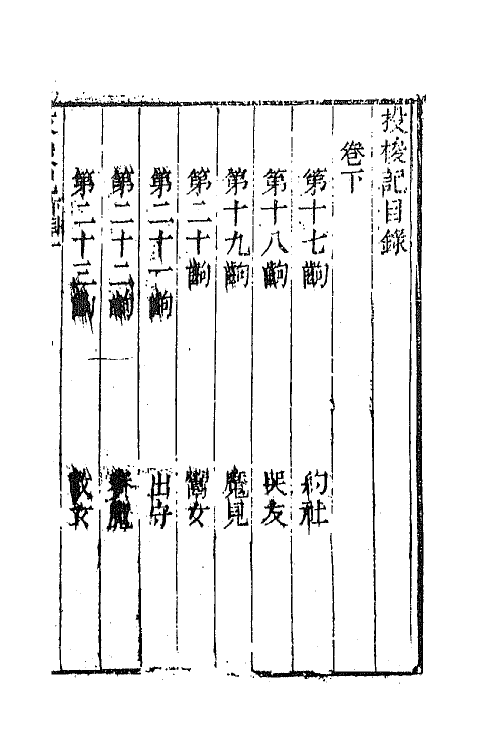 投梭記目錄
卷下
第十七齣 約社
第十八齣 哭友
第十九齣 魔見
第二十齣 鬻女
第二十一齣 出守
第二十二齣
第二十三齣 女